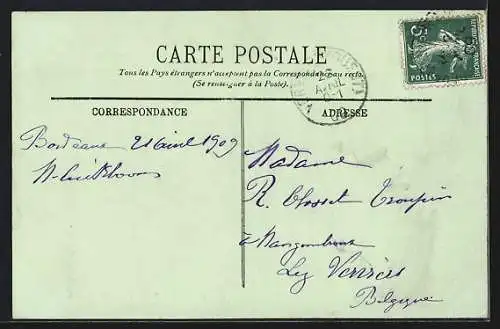 CARTE POSTALE
Tous les Pays étrangers n'acceptent pas la Correspondance au recto.
(Se renseigner à la Poste).
CORRESPONDANCE
ADRESSE
5c
POSTES
AVRIL
09
Bordeaux 21 avril 1909
Madame
R. Closset
à
Lez Verviers
Belgique